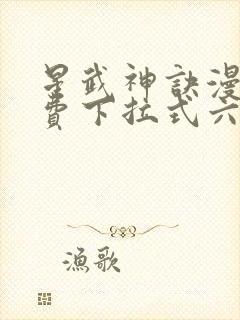 星武神訣漫
費下拉式六
漁歌